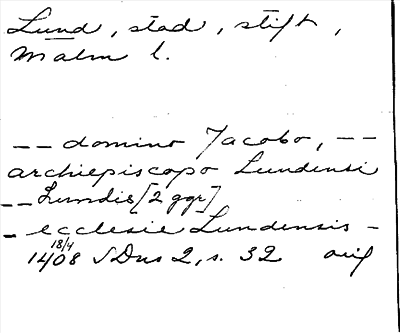 Lund, stad, stift,
Malm l.
-- domino Jacobo, --
archiepiscopo Lundensi
-- Lundis [2 ggr]
- ecclesie Lundensis -
18/4
1408 SDns 2, s. 32 orig